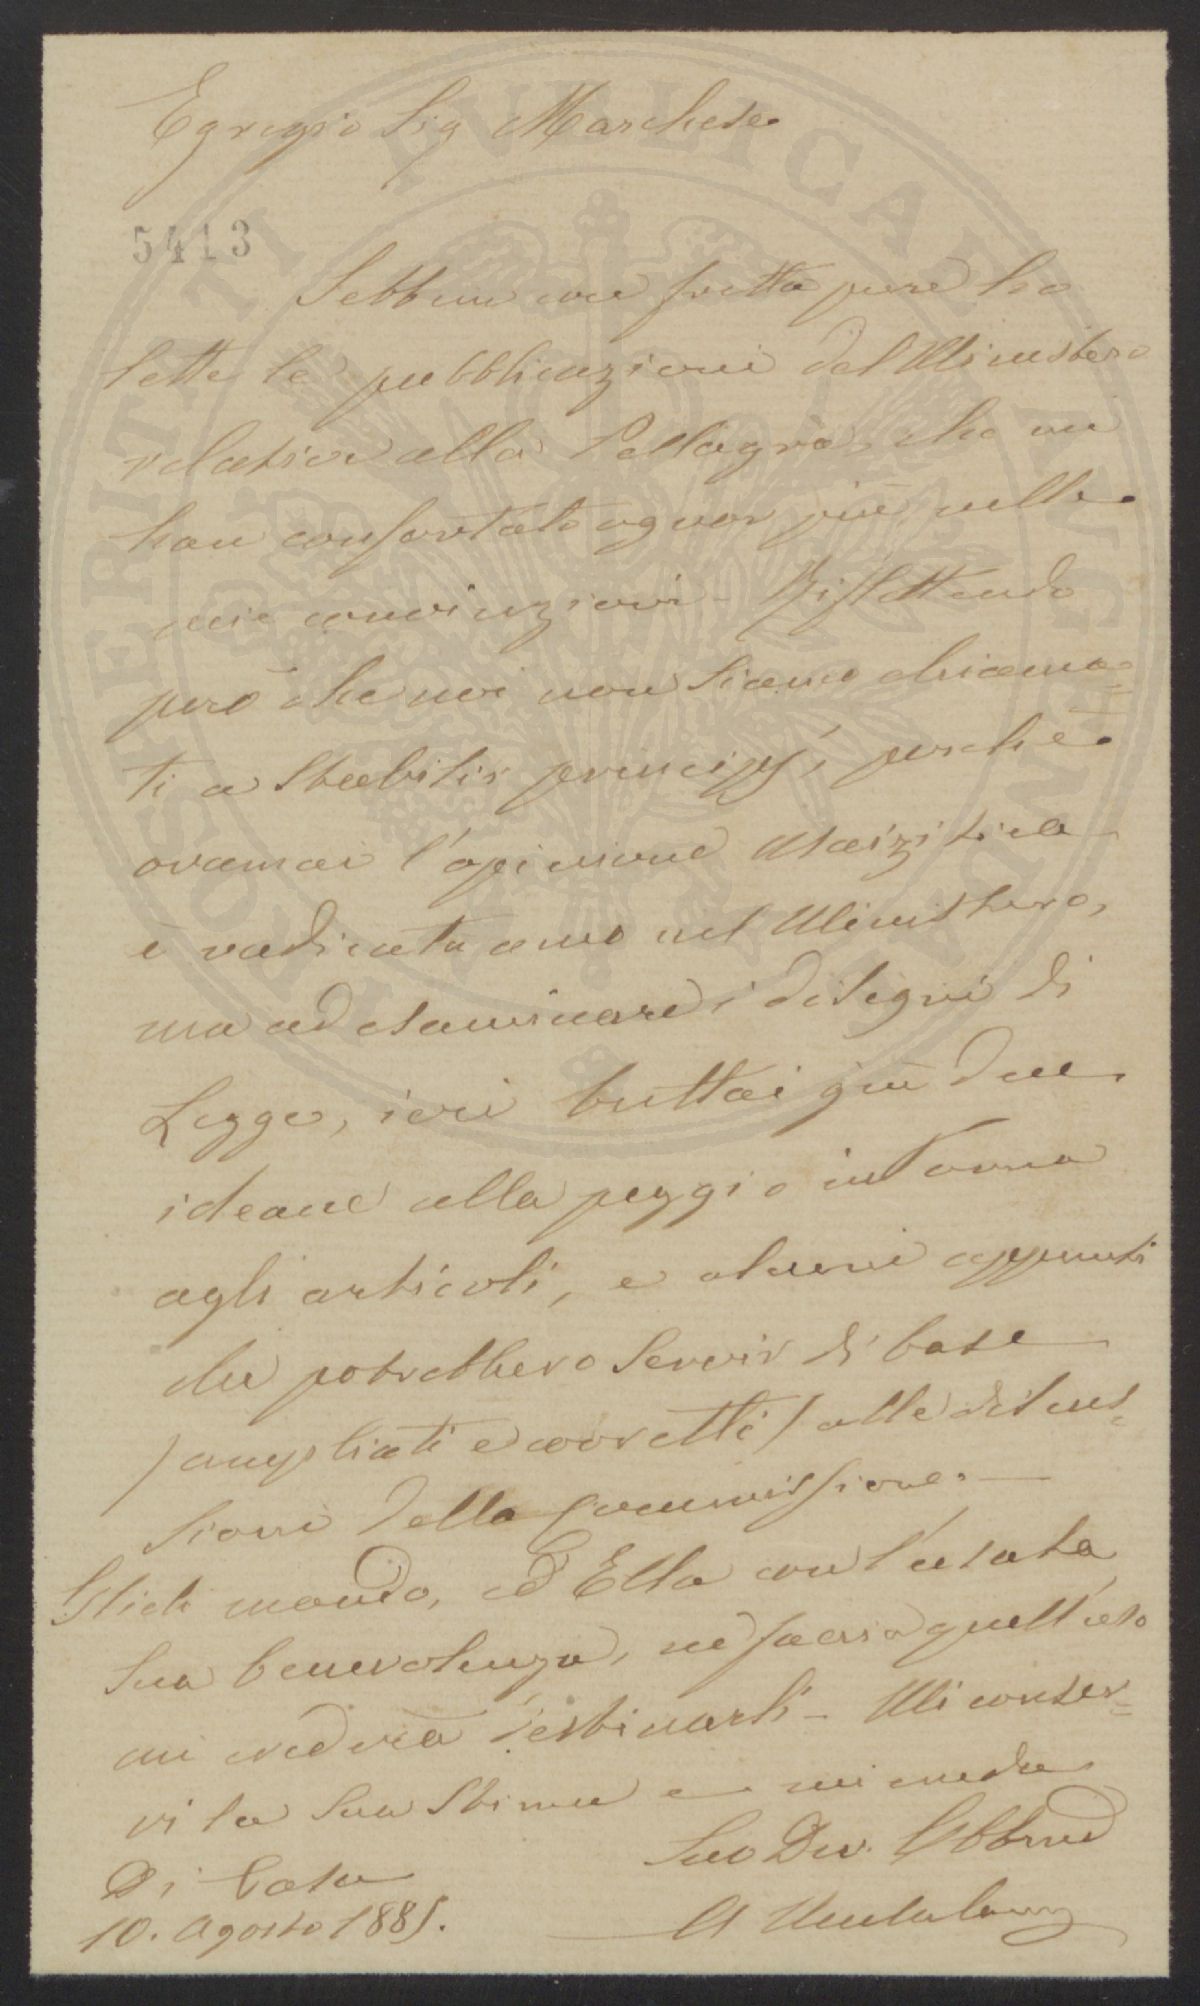 Egregio Sig Marchese
5413
Sebbene con fretta pure ho
lette le pubblicazioni del Ministero
relative alla Pellagra, che mi
han confortato ognor più nelle
mie convinzioni - Riflettendo
però che noi non siamo chiama=
ti a stabilir principj, perchè
oramai l'opinione Maizitica
è radicata anco nel Ministero,
ma ad esaminare i disegni di
Legge, ieri buttai giù due
ideane alla peggio intorno
agli articoli, e alcuni appunti
che potrebbero servir di base
(ampliati e corretti) alle discus=
sioni della Commissione. —
Glieli mando, ed Ella con l'usata
sua benevolenza, ne faccia quell'uso
mi crederà destinarli - Mi conser=
vi la sua stima e mi creda
Suo Dev. Obbmo
Di Casa
10. Agosto 1885.
A
PUBLICAE
PROSPERITATI